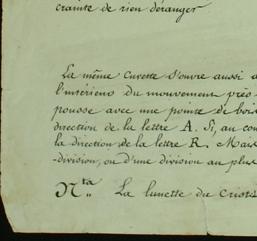 crainte de rien déranger
La même Cuvette s'ouvre aussi a
l'intérieur du mouvement près
pousse avec une pointe de bois
direction de la lettre A. Si, au con
la direction de la lettre R. Mais
division, ou d'une division au plus
Nta La lunette du